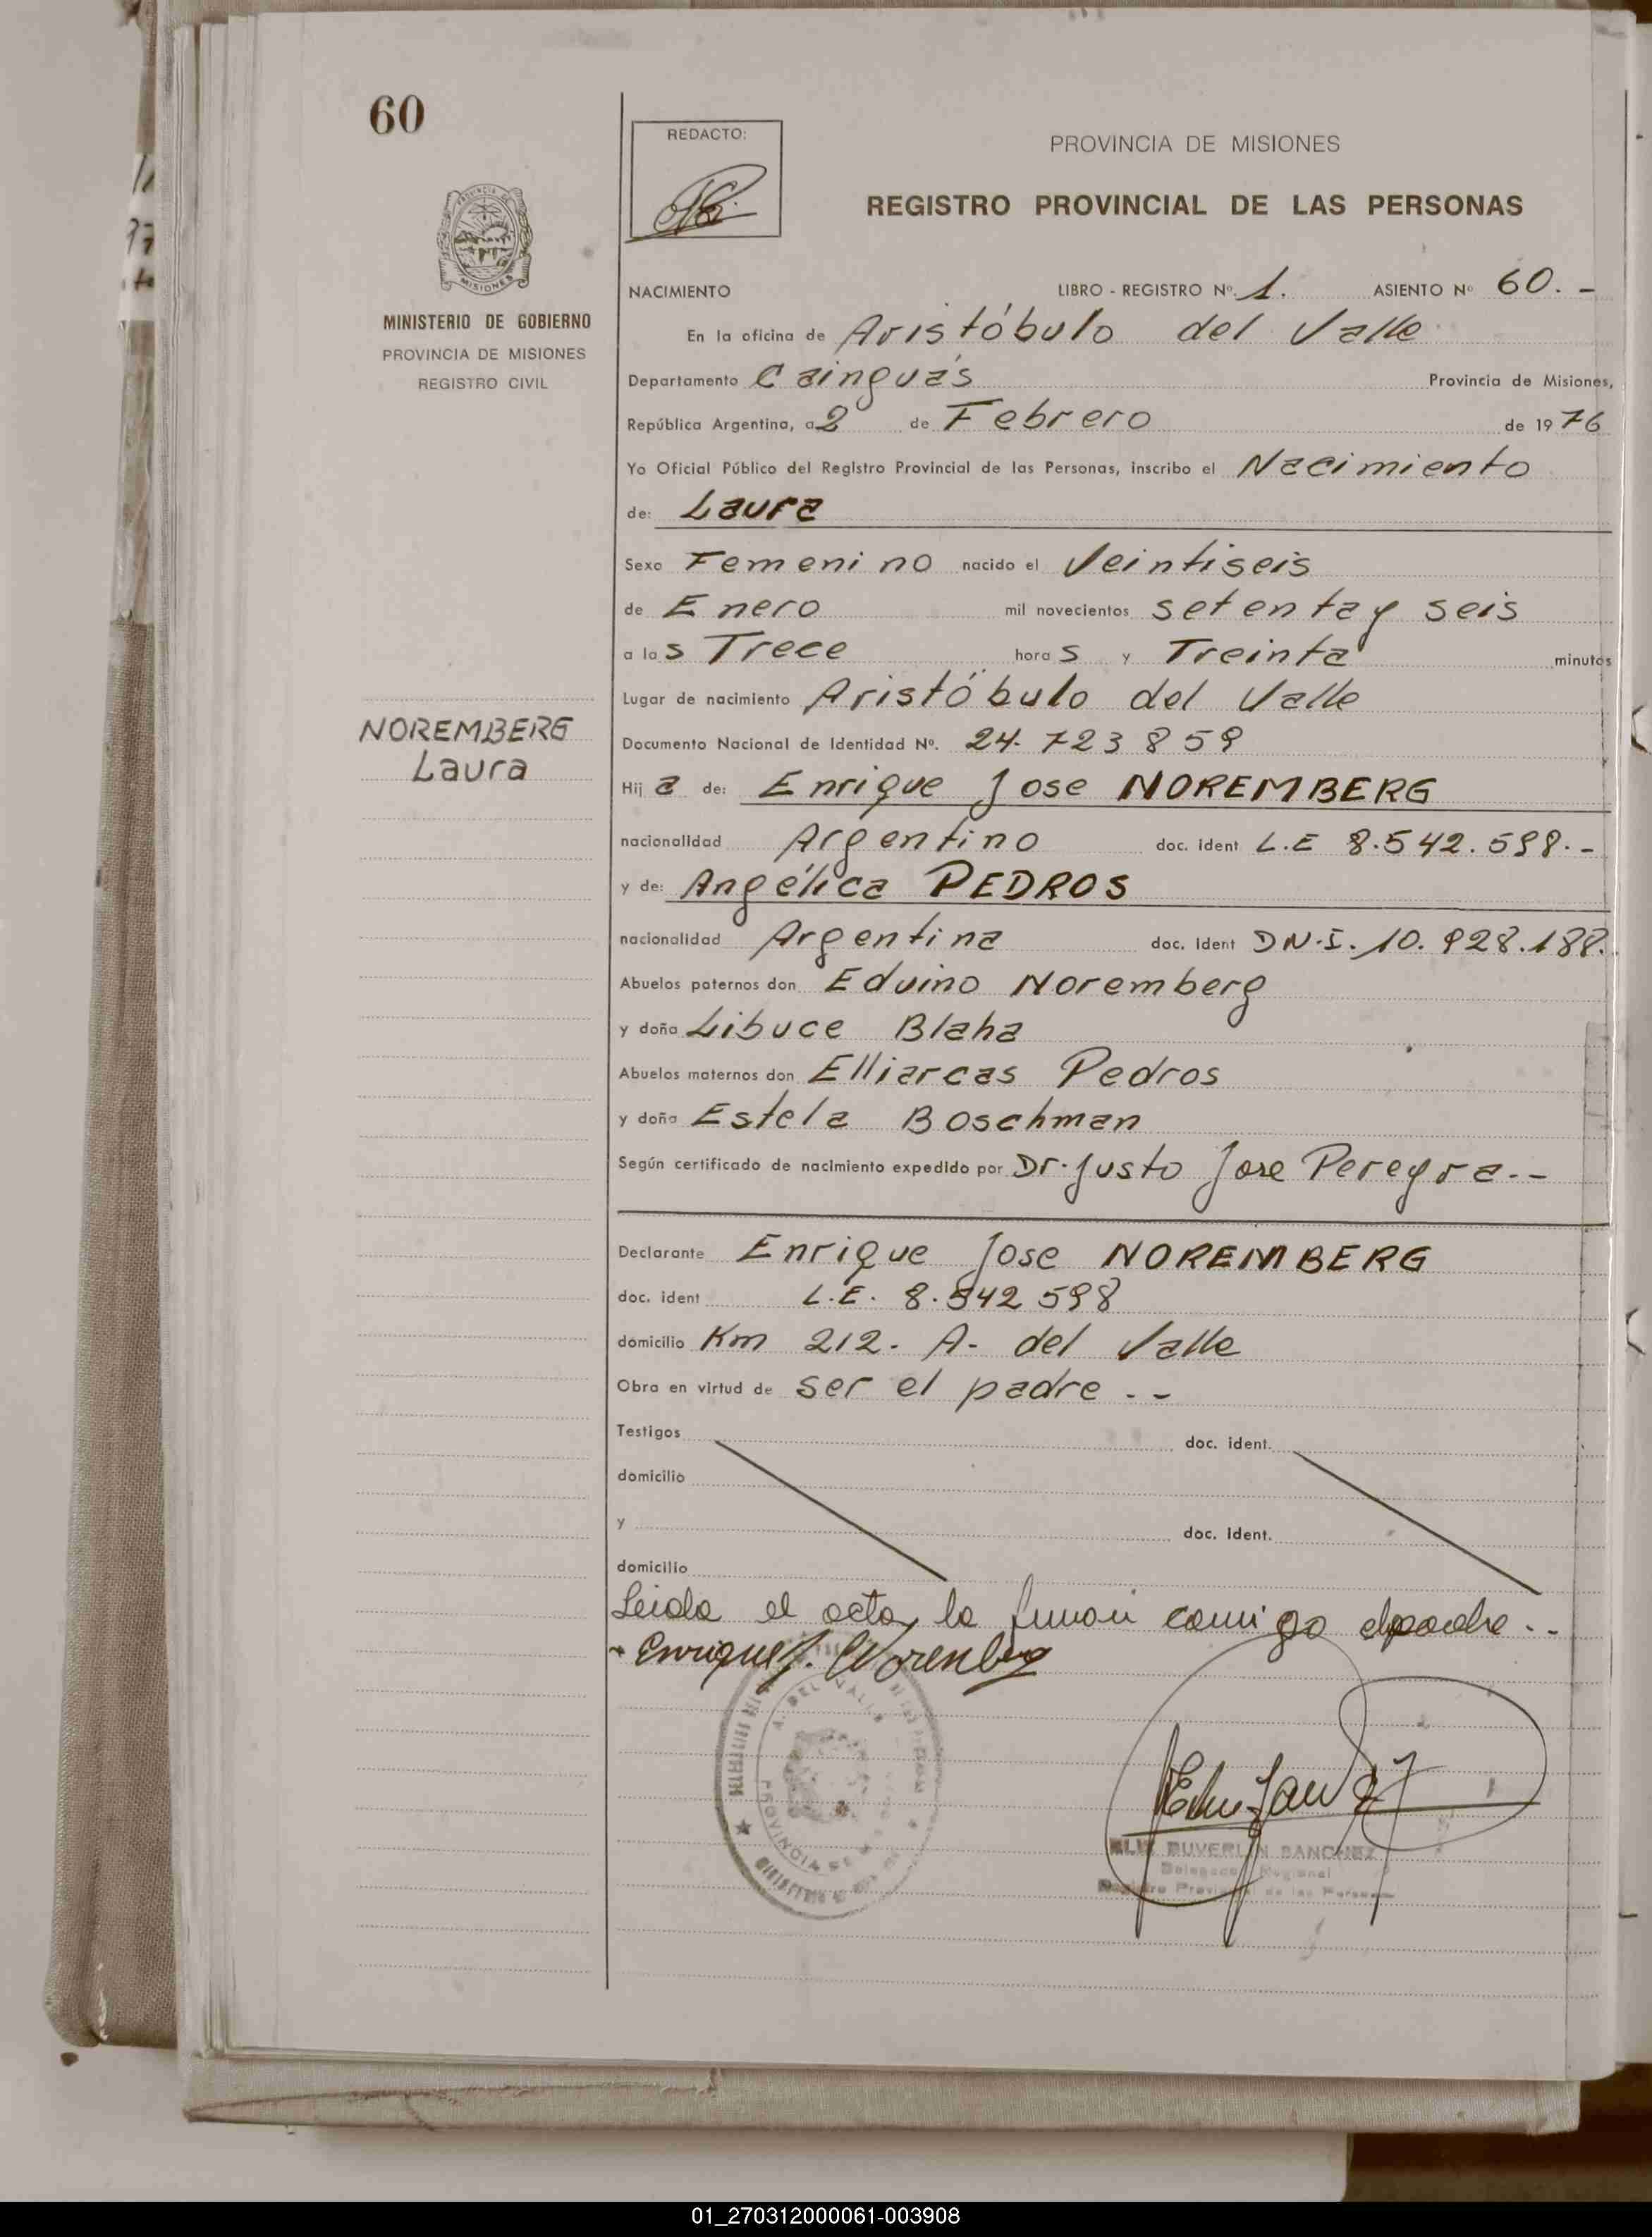 60
REDACTO:
PROVINCIA DE MISIONES
REGISTRO PROVINCIAL DE LAS PERSONAS
MINISTERIO DE GOBIERNO
PROVINCIA DE MISIONES
REGISTRO CIVIL
NACIMIENTO LIBRO - REGISTRO Nº. 1. ASIENTO Nº 60. -
En la oficina de Aristóbulo del Valle
Departamento Cainguás Provincia de Misiones,
República Argentina, a 2 de Febrero de 1976
Yo Oficial Público del Registro Provincial de las Personas, inscribo el Nacimiento
de: Laura
Sexo Femenino nacido el Veintiseis
de Enero mil novecientos setenta y seis
a las Trece horas y Treinta minutos
Lugar de nacimiento Aristóbulo del Valle
NOREMBERG
Laura
Documento Nacional de Identidad Nº. 24. 723 859
Hija de: Enrique Jose NOREMBERG
nacionalidad Argentino doc. ident L.E 8.542.598. -
y de: Angélica PEDROS
nacionalidad Argentina doc. ident D N.I. 10. 928.188.
Abuelos paternos don Eduino Noremberg
y doña Libuce Blaha
Abuelos maternos don Elliarcas Pedros
y doña Estela Boschman
Según certificado de nacimiento expedido por Dr. Justo Jose Pereyra. - -
Declarante Enrique Jose NOREMBERG
doc. ident L.E. 8.542 598
domicilio Km 212. A. del Valle
Obra en virtud de ser el padre - -
Testigos doc. ident.
domicilio
y doc. ident.
domicilio
Leida el acta, la firman comigo el padre - -
Enrique J. Norenberg
A. DEL VALLE
PROVINCIA DE
BUVERLIN SANCHEZ
Regional
Registro Provincial de las Personas
01_270312000061-003908